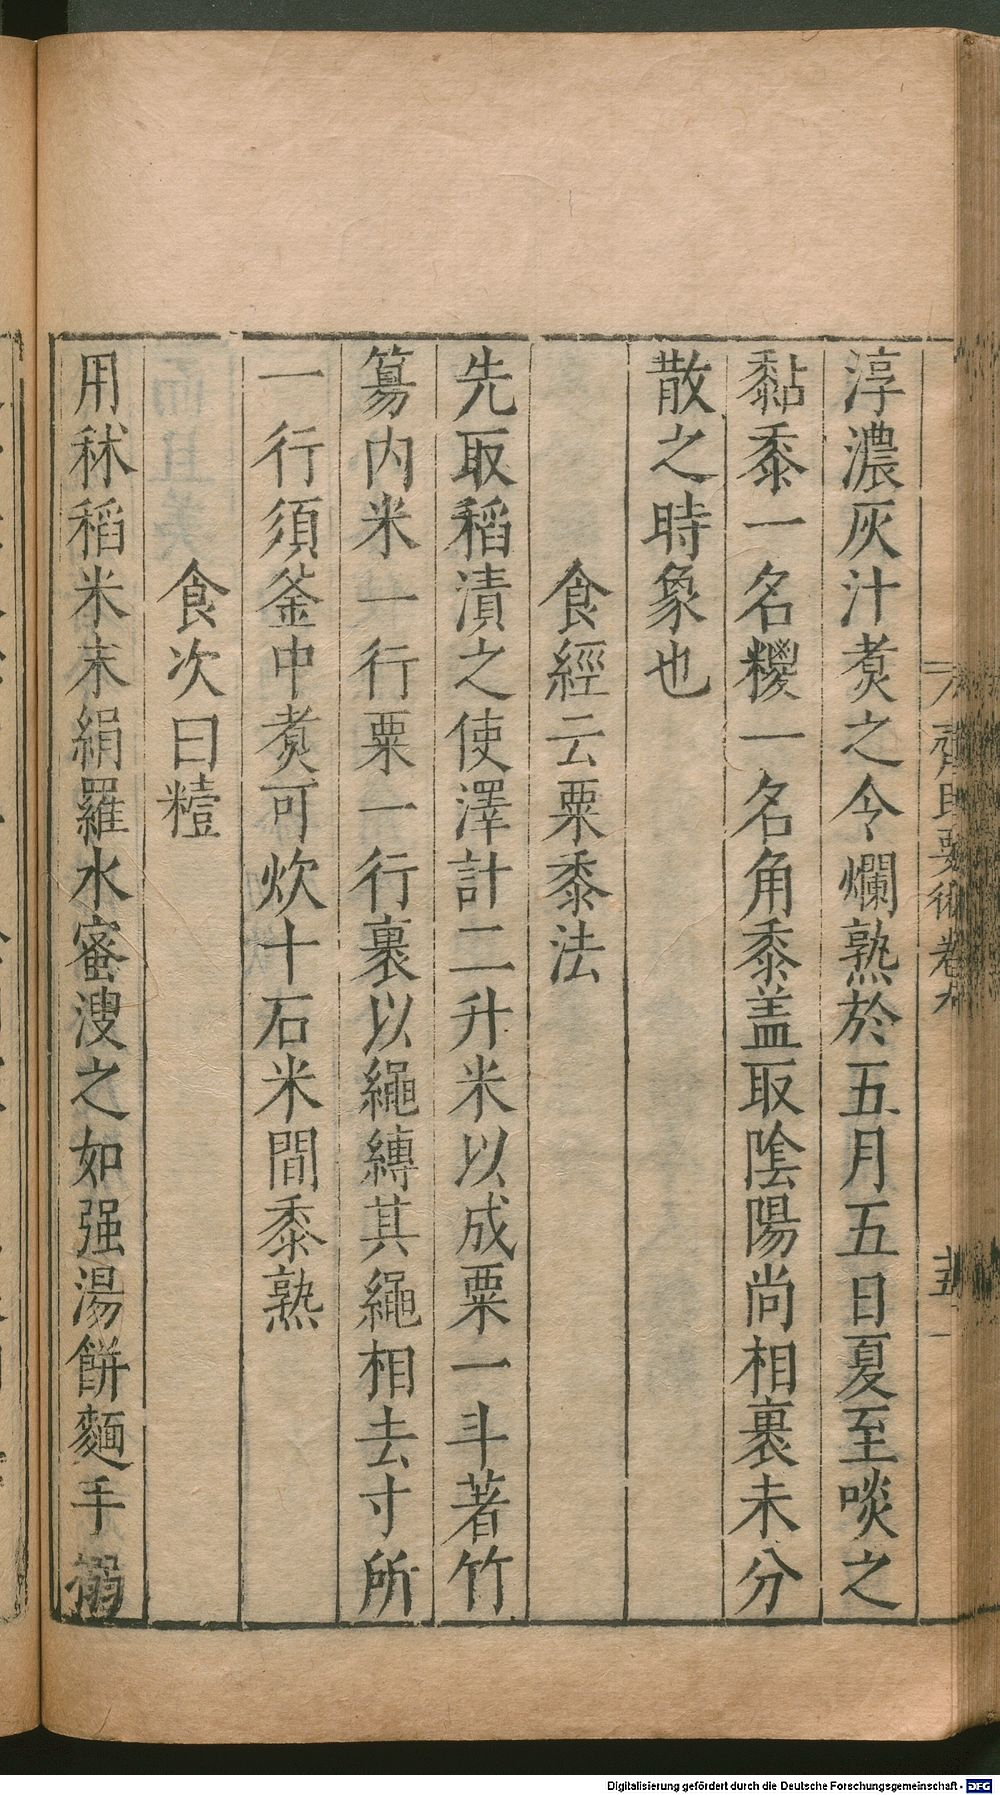 淳濃灰汁煑之令爛熟於五月五日夏至啖之
黏黍一名糉一名角黍盖取陰陽尚相裹未分
散之時象也
食經云粟黍法
先取稻漬之使澤計二升米以成粟一斗著竹
篿内米一行粟一行裹以繩縛其繩相去寸所
一行須釜中煑可炊十石米間黍熟
食次曰䊗
用秫稻米末絹羅水蜜溲之如强湯餅麵手搦
齊民要術卷九
十五
Digitalisierung gefördert durch die Deutsche Forschungsgemeinschaft - DFG